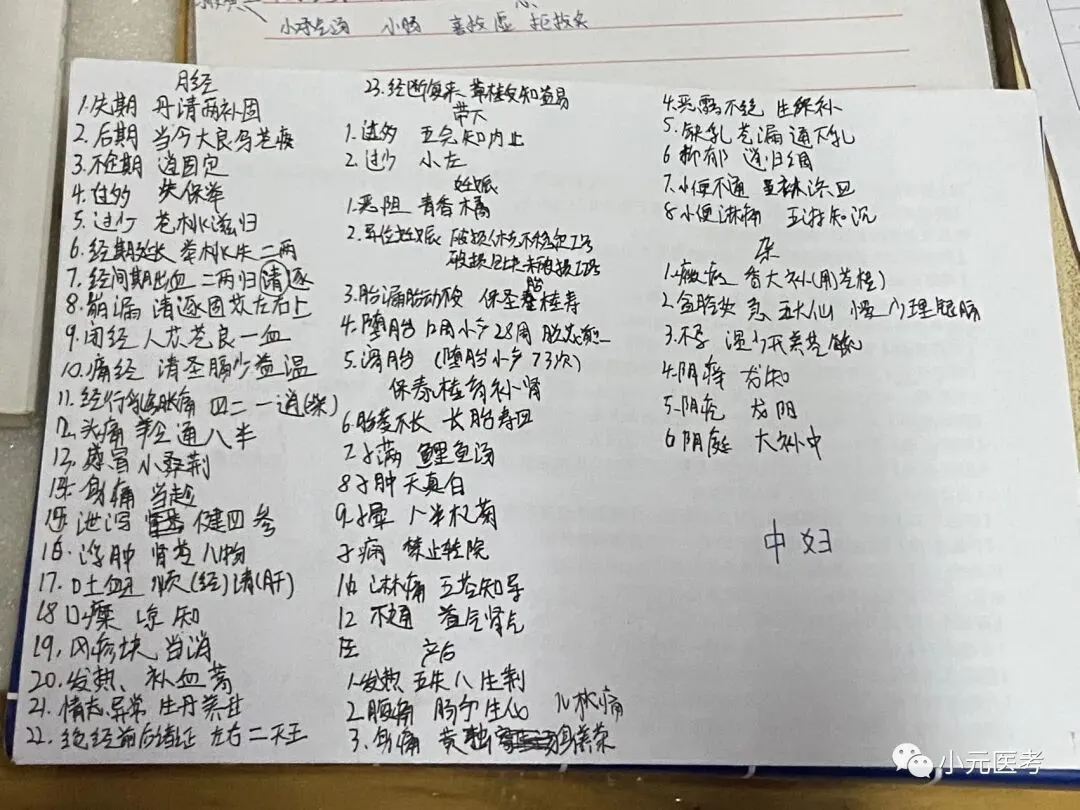 小肠
月经
1.先期 丹清两补固
2.后期 当今大良乌芩痰
3.不定期 逍固定
4.过多 失保举
5.过少 芎桃滋归
6.经期延长 举桃失二两
7.经间期出血 二两归清逐
8.崩漏 清逐固 左右上
9.闭经 人苁芎良一血
10.痛经 清圣膈少益温
11.经行乳房胀痛 四二一逍(柴)
12.头痛 羊 通八半
13.感冒 小桑荆
14.身痛 当趁
15.泄泻 健四参
16.浮肿 肾苓八物
17.吐血 顺(经)清(肝)
18口糜 凉 知
19.风疹块 当消
20.发热、补血蒿
21.情志异常 生丹 甘
22.绝经前后诸证 左右二天王
23.经断复来 知益易
带下
1.过多 五完知内止
2.过少 小左
妊娠
1.恶阻 青香橘
2.异位妊娠 破损休克不稳定1号
破损包块未破损2号
胎
3.胎漏胎动不安 保圣 桂寿
4.堕胎 12周小产28周 脱
5.滑胎 (堕胎小产≥3次)
保泰桂育补肾
6.胎萎不长 长胎寿四
7子满 鲤鱼汤
8子肿 天真白
9.子晕 半杞菊
子痫 禁止转院
淋痛 五苓知导
12 不通 益气肾气
产后
1.发热 五失八生荆
2.腹痛 肠宁生化 儿枕痛
3.身痛 黄独
4.恶露不绝 生保补
5.缺乳 芎漏通下乳
6 抑郁 逍归绢
7.小便不通
8小便淋痛 五 知沉
杂
1.癥瘕 香大补(用苓桂)
2.盆腔炎 急 五大仙 慢 少理银肠
3.不孕 温少开
4.阴痒 龙知
5.阴疮 龙阴
6阴挺 大补中
中妇
小元医考